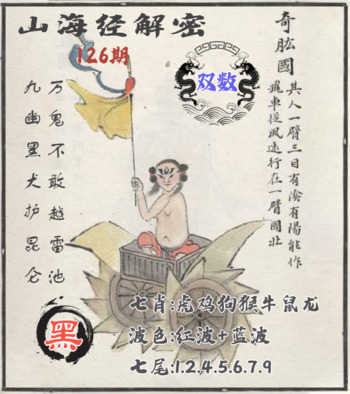 山海经解密
126期
双数
奇肱國
其人一臂三目有陰有陽能作
飛車從風遠行在一臂國北
万鬼不敢越雷池
九幽黑犬护昆仑
黑
七肖:虎鸡狗猴牛鼠龙
波色:红波+蓝波
七尾:1.2.4.5.6.7.9